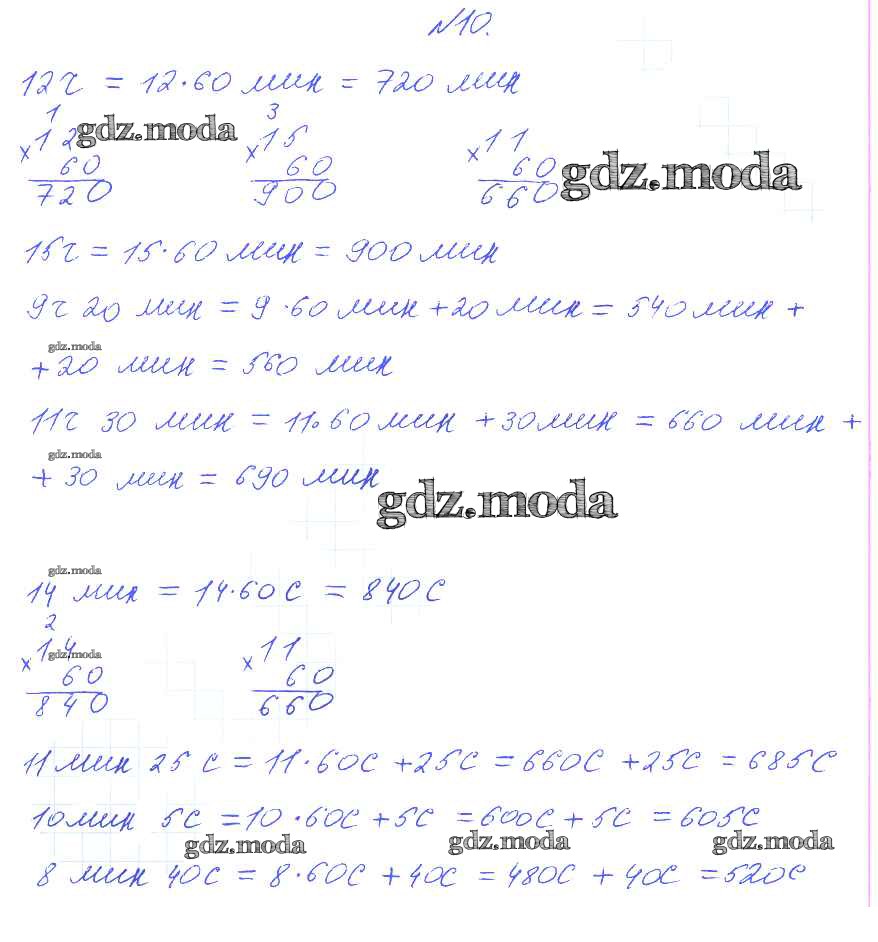 №10.
12ч = 12·60 мин = 720 мин
1 3
×12 gdz.moda ×15 ×11
60 60 60 gdz.moda
720 900 660
15ч = 15·60 мин = 900 мин
9ч 20 мин = 9·60 мин + 20 мин = 540 мин +
gdz.moda
+ 20 мин = 560 мин
11ч 30 мин = 11·60 мин + 30 мин = 660 мин +
gdz.moda
+ 30 мин = 690 мин
gdz.moda
gdz.moda
14 мин = 14·60 с = 840 с
2
×14 gdz.moda ×11
60 60
840 660
11 мин 25 с = 11·60с + 25с = 660с + 25с = 685с
10 мин 5с = 10·60с + 5с = 600с + 5с = 605с
gdz.moda gdz.moda gdz.moda
8 мин 40с = 8·60с + 40с = 480с + 40с = 520с